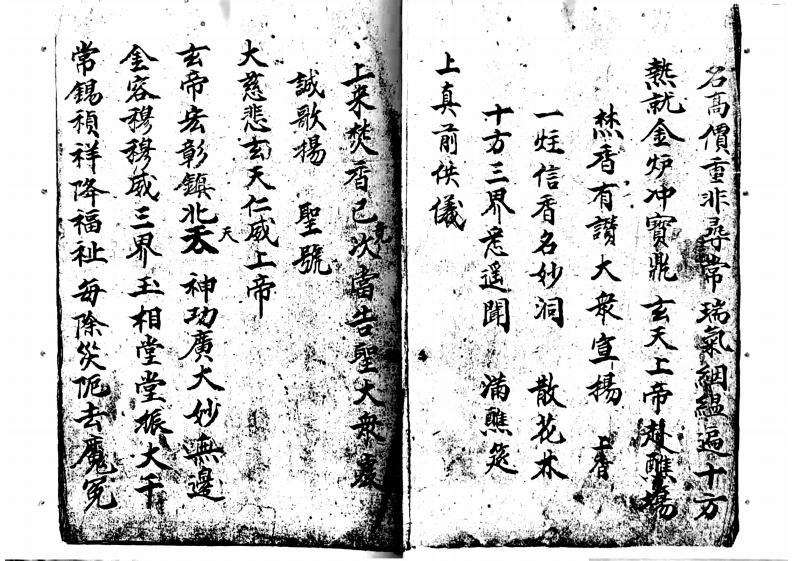 名高價重非尋常瑞氣絪緼遍十方
爇就金炉冲寳鼎 玄天上帝赴醮場
焚香有讃大衆宣揚 上香
一炷信香名妙洞 散花林
十方三界悉遥聞 滿醮筵
上真前供儀
上来焚香已次當告聖大衆虔
誠歌揚 聖號
大慈悲玄天仁威上帝
玄帝宏彰鎮北天 神功廣大妙無邊
天
金容穆穆威三界 玉相堂堂振大千
常錫禎祥降福祉 每除災阨去魔冤